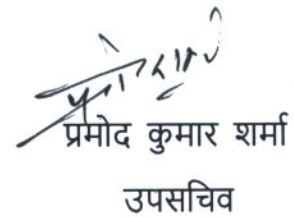 प्रमोद कुमार शर्मा
उपसचिव